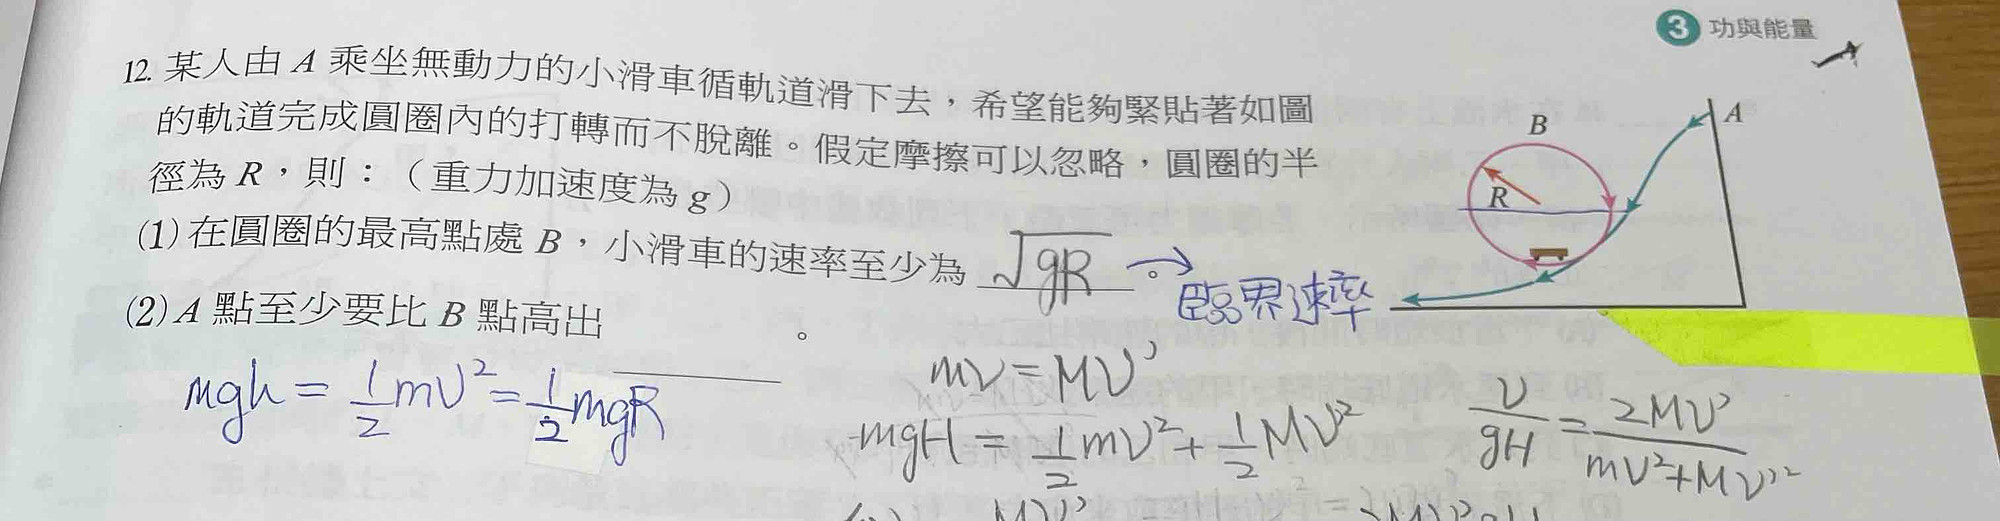 3 功與能量
12. 某人由 A 乘坐無動力的小滑車循軌道滑下去，希望能夠緊貼著如圖
的軌道完成圓圈內的打轉而不脫離。假定摩擦可以忽略，圓圈的半
徑為 R，則：（重力加速度為 g）
(1) 在圓圈的最高點處 B，小滑車的速率至少為 √gR 。→ 臨界速率
(2) A 點至少要比 B 點高出 。
A
B
R
mgh = 1/2 mv² = 1/2 mgR
mv = MV'
mgH = 1/2 mv² + 1/2 MV'²
v/gH = 2MV'/mv²+MV'²